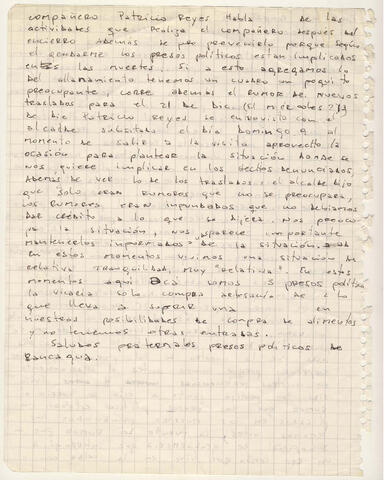 compañero Patricio Reyes habla de las
actividades que realiza el compañero despues del
encierro además se pro prevenirlo porque según
el gendarme los presos políticos están implicados
en las muertes. Si a esto agregamos lo
del allanamiento tenemos un cuadro un poquito
preocupante, corre además el rumor de nuevos
traslados para el 21 de Dic (El miércoles 21)
de Dic Patricio Reyes se entrevistó con el
alcalde subrtats el día Domingo 9 al
momento de salir a la visita aprovechó la
ocasión para plantear la situación donde se
nos quiere implicar en los hechos denunciados,
además de ver lo de los traslados. el alcalde dijo
que solo eran rumores que no se preocupara,
los rumores eran infundados que no debíamos
dar crédito a lo que se dijera. Nos preocu
pa la situación, nos parece importante
mantenerlos informados de la situación.
en estos momentos vivimos una situación de
relativa tranquilidad, muy "relativa". En estos
momentos aquí somos 5 presos polític
la vicaría solo compra artesanía de
que lleva a sufrir una en
nuestras posibilidades de compra de alimentos
y no tenemos otras entradas.
Saludos fraternales presos políticos de
Rancagua.